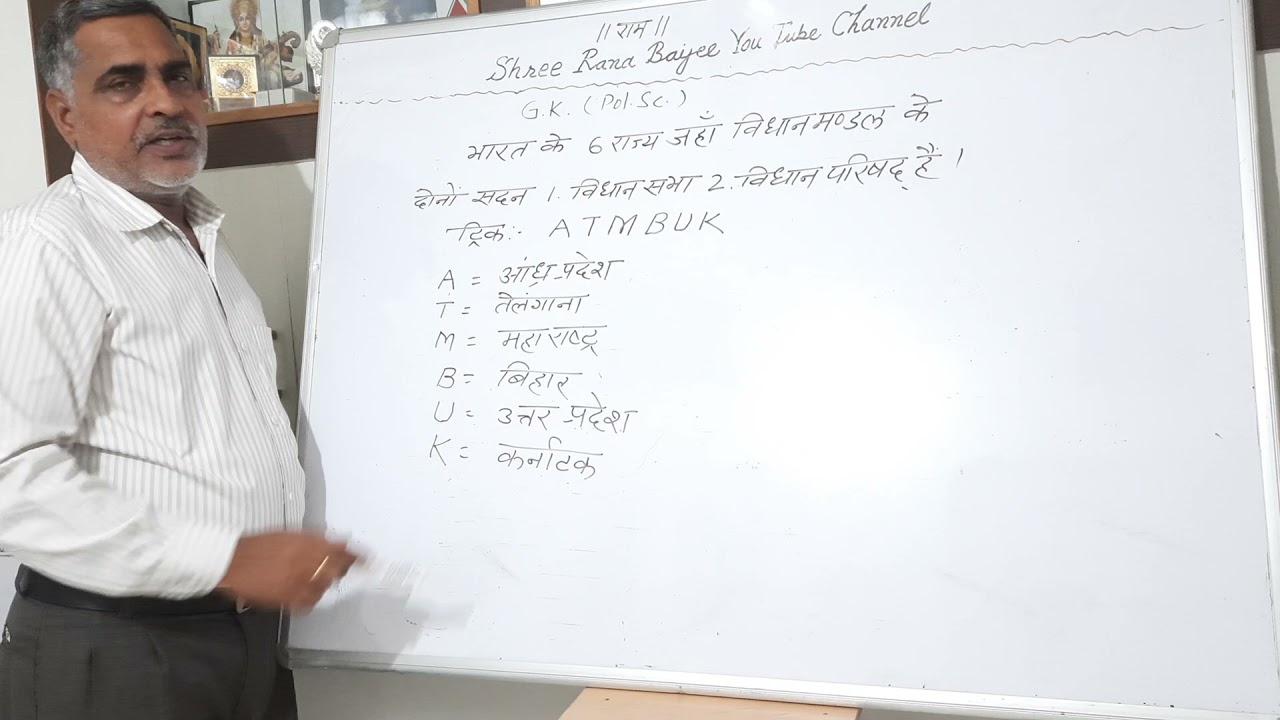 ॥ राम ॥
Shree Rana Baijee You Tube Channel
G.K. (Pol. Sc.)
भारत के 6 राज्य जहाँ विधानमण्डल के
दोनों सदन 1. विधान सभा 2. विधान परिषद् हैं ।
ट्रिक:- ATMBUK
A = आंध्र प्रदेश
T = तेलंगाना
M = महाराष्ट्र
B = बिहार
U = उत्तर प्रदेश
K = कर्नाटक